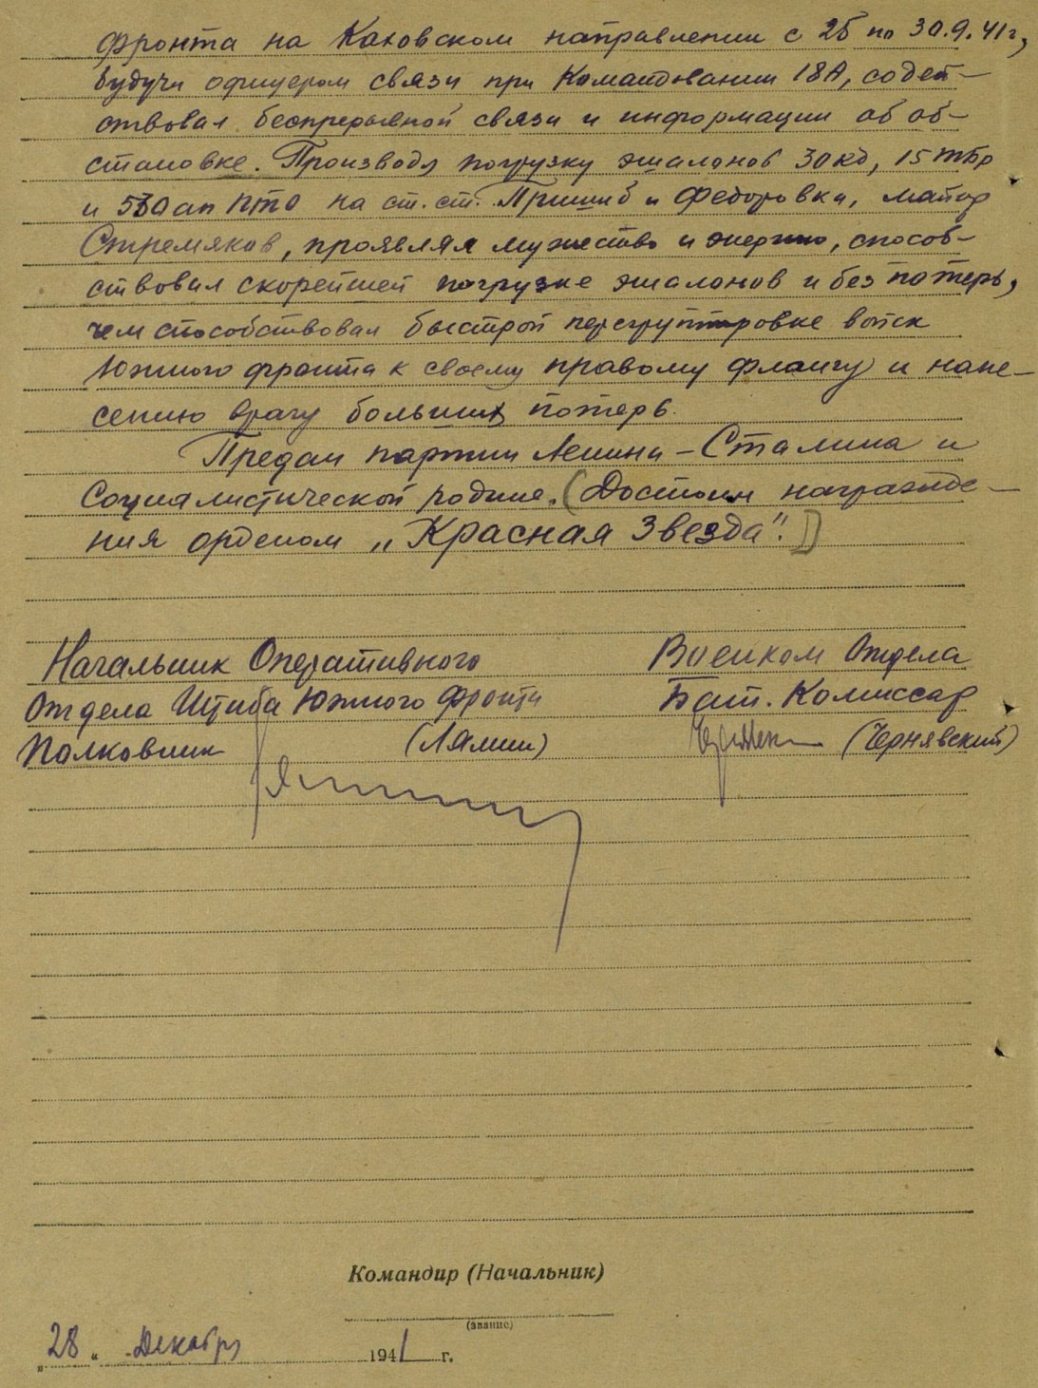 фронта на Каховском направлении с 25 по 30.9.41 г,
будучи офицером связи при Командовании 18А, содей-
ствовал беспрерывной связи и информации об об-
становке. Производя погрузку эшалонов 30 кд, 15 тбр
и 530 ап ПТО на ст. ст. Пришиб и Федоровка, майор
Стремяков, проявляя мужество и энергию, способ-
ствовал скорейшей погрузке эшалонов и без потерь,
чем способствовал быстрой перегруппировке войск
Южного фронта к своему правому флангу и нане-
сению врагу больших потерь.
Предан партии Ленина-Сталина и
Социалистической родине. (Достоин награжде-
ния орденом „Красная Звезда".)
Начальник Оперативного
Отдела Штаба Южного Фронта
Полковник (Лямин)
Военком Отдела
Бат. Комиссар
(Чернявский)
Командир (Начальник)
(звание)
„28" Декабря 1941 г.